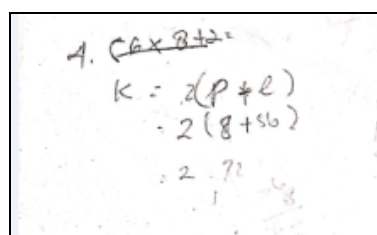 4. 56 x 8 + 2 =
K = 2(p + l)
= 2(8 + 56)
= 2 72